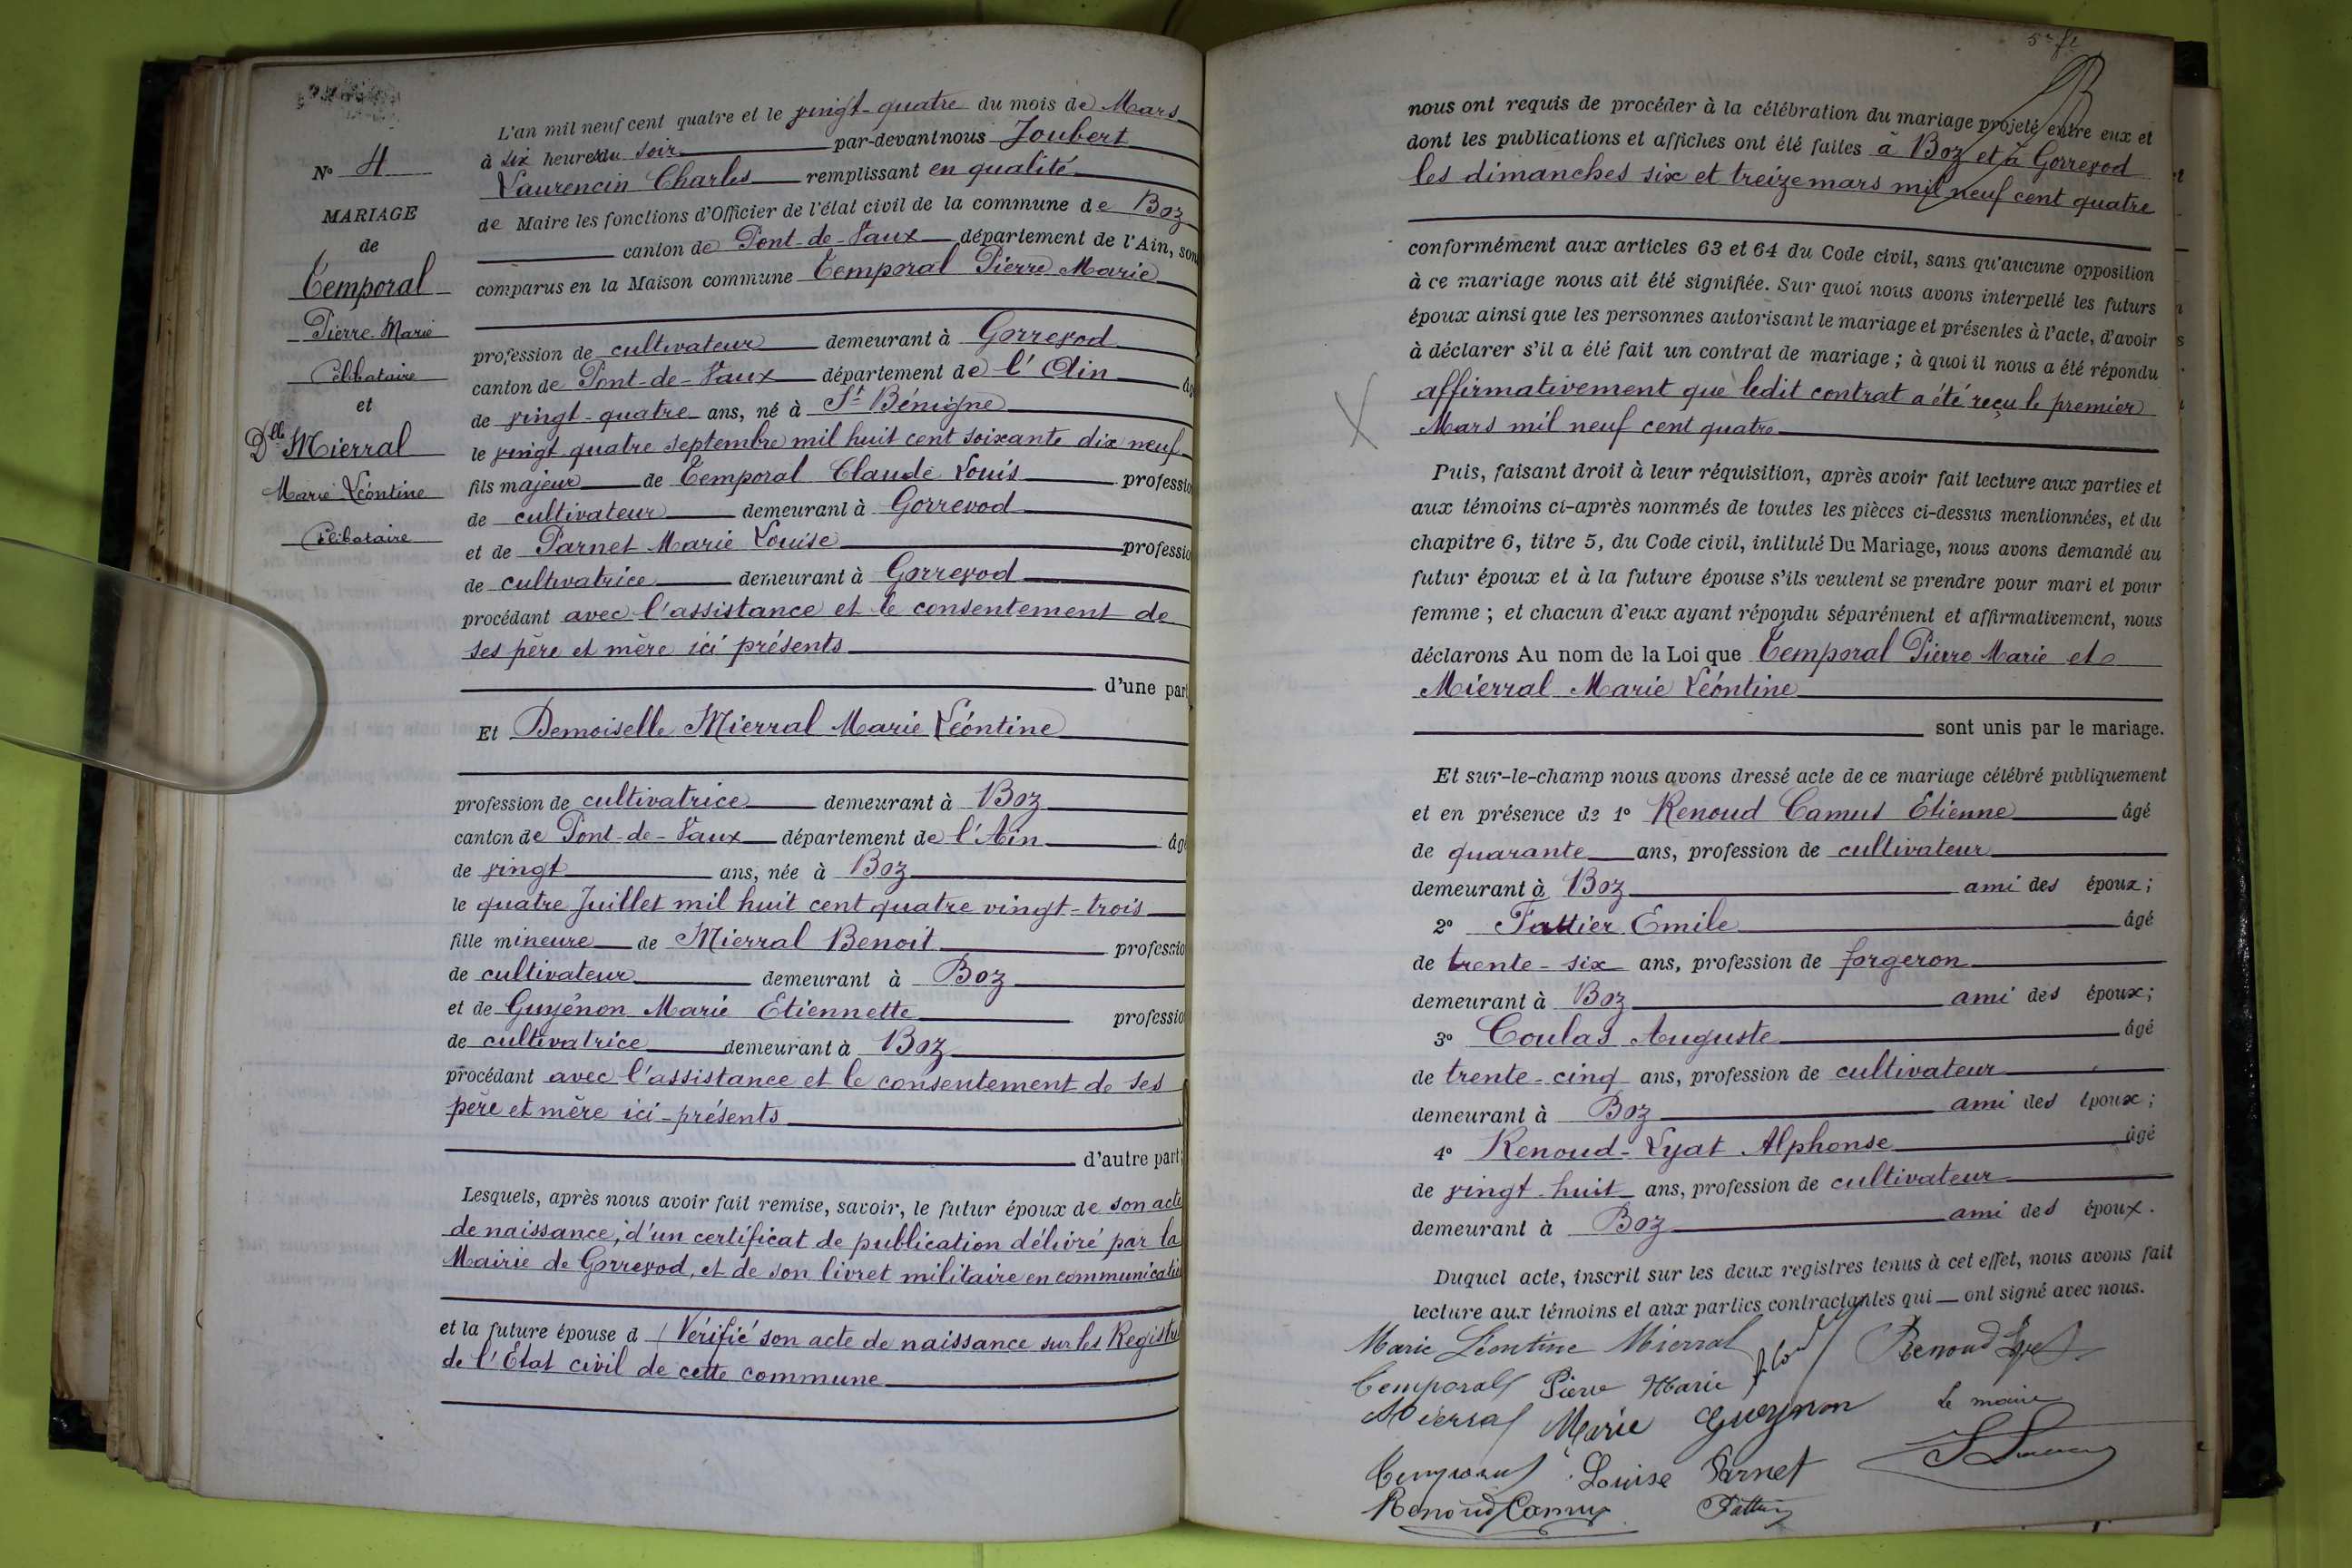 N° 4
MARIAGE
de
Temporal
Pierre Marie
Célibataire
et
Dlle Mierral
Marie Léontine
Célibataire
L'an mil neuf cent quatre et le vingt-quatre du mois de Mars
à six heures du soir par-devant nous Joubert
Laurencin Charles remplissant en qualité
de Maire les fonctions d'Officier de l'état civil de la commune de Boz
canton de Pont-de-Vaux département de l'Ain, son
comparus en la Maison commune Temporal Pierre Marie
profession de cultivateur demeurant à Gorrevod
canton de Pont-de-Vaux département de l'Ain âg
de vingt-quatre ans, né à St Bénigne
le vingt quatre septembre mil huit cent soixante dix neuf
fils majeur de Temporal Claude Louis professio
de cultivateur demeurant à Gorrevod
et de Parnet Marie Louise professio
de cultivatrice demeurant à Gorrevod
procédant avec l'assistance et le consentement de
ses père et mère ici présents
d'une part
Et Demoiselle Mierral Marie Léontine
profession de cultivatrice demeurant à Boz
canton de Pont-de-Vaux département de l'Ain âgé
de vingt ans, née à Boz
le quatre Juillet mil huit cent quatre vingt-trois
fille mineure de Mierral Benoit professio
de cultivateur demeurant à Boz
et de Guyénon Marie Etiennette professio
de cultivatrice demeurant à Boz
procédant avec l'assistance et le consentement de ses
père et mère ici-présents
d'autre part;
Lesquels, après nous avoir fait remise, savoir, le futur époux de son acte
de naissance, d'un certificat de publication délivré par la
Mairie de Gorrevod, et de son livret militaire en communicatio
et la future épouse d Vérifié son acte de naissance sur les Registre
de l'État civil de cette commune
nous ont requis de procéder à la célébration du mariage projeté entre eux et
dont les publications et affiches ont été faites à Boz et à Gorrevod
les dimanches six et treize mars mil neuf cent quatre
conformément aux articles 63 et 64 du Code civil, sans qu'aucune opposition
à ce mariage nous ait été signifiée. Sur quoi nous avons interpellé les futurs
époux ainsi que les personnes autorisant le mariage et présentes à l'acte, d'avoir
à déclarer s'il a été fait un contrat de mariage ; à quoi il nous a été répondu
affirmativement que ledit contrat a été reçu le premier
Mars mil neuf cent quatre
Puis, faisant droit à leur réquisition, après avoir fait lecture aux parties et
aux témoins ci-après nommés de toutes les pièces ci-dessus mentionnées, et du
chapitre 6, titre 5, du Code civil, intitulé Du Mariage, nous avons demandé au
futur époux et à la future épouse s'ils veulent se prendre pour mari et pour
femme ; et chacun d'eux ayant répondu séparément et affirmativement, nous
déclarons Au nom de la Loi que Temporal Pierre Marie et
Mierral Marie Léontine
sont unis par le mariage.
Et sur-le-champ nous avons dressé acte de ce mariage célébré publiquement
et en présence de 1° Renoud Camus Etienne âgé
de quarante ans, profession de cultivateur
demeurant à Boz ami des époux;
2° Tattier Emile âgé
de trente-six ans, profession de forgeron
demeurant à Boz ami des époux;
3° Coulas Auguste âgé
de trente-cinq ans, profession de cultivateur
demeurant à Boz ami des époux;
4° Renoud-Lyat Alphonse âgé
de vingt-huit ans, profession de cultivateur
demeurant à Boz ami des époux.
Duquel acte, inscrit sur les deux registres tenus à cet effet, nous avons fait
lecture aux témoins et aux parties contractantes qui ont signé avec nous.
Marie Léontine Mierral Renoud Lyat
Temporal Pierre Marie
Mierral Marie Guyénon Le maire
Temporal Louise Parnet
Renoud Camus Tattier